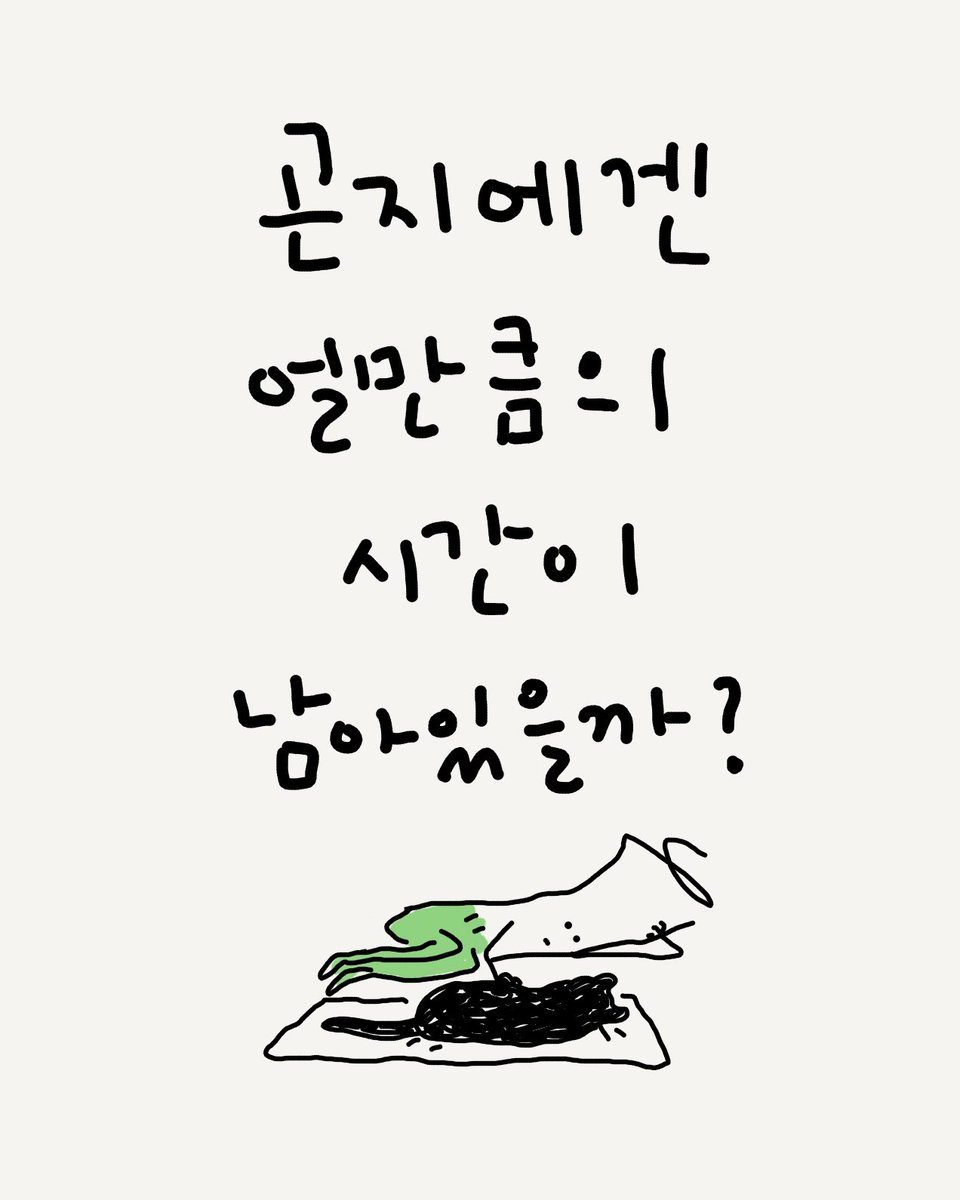 곤지에겐
얼만큼의
시간이
남아있을까?